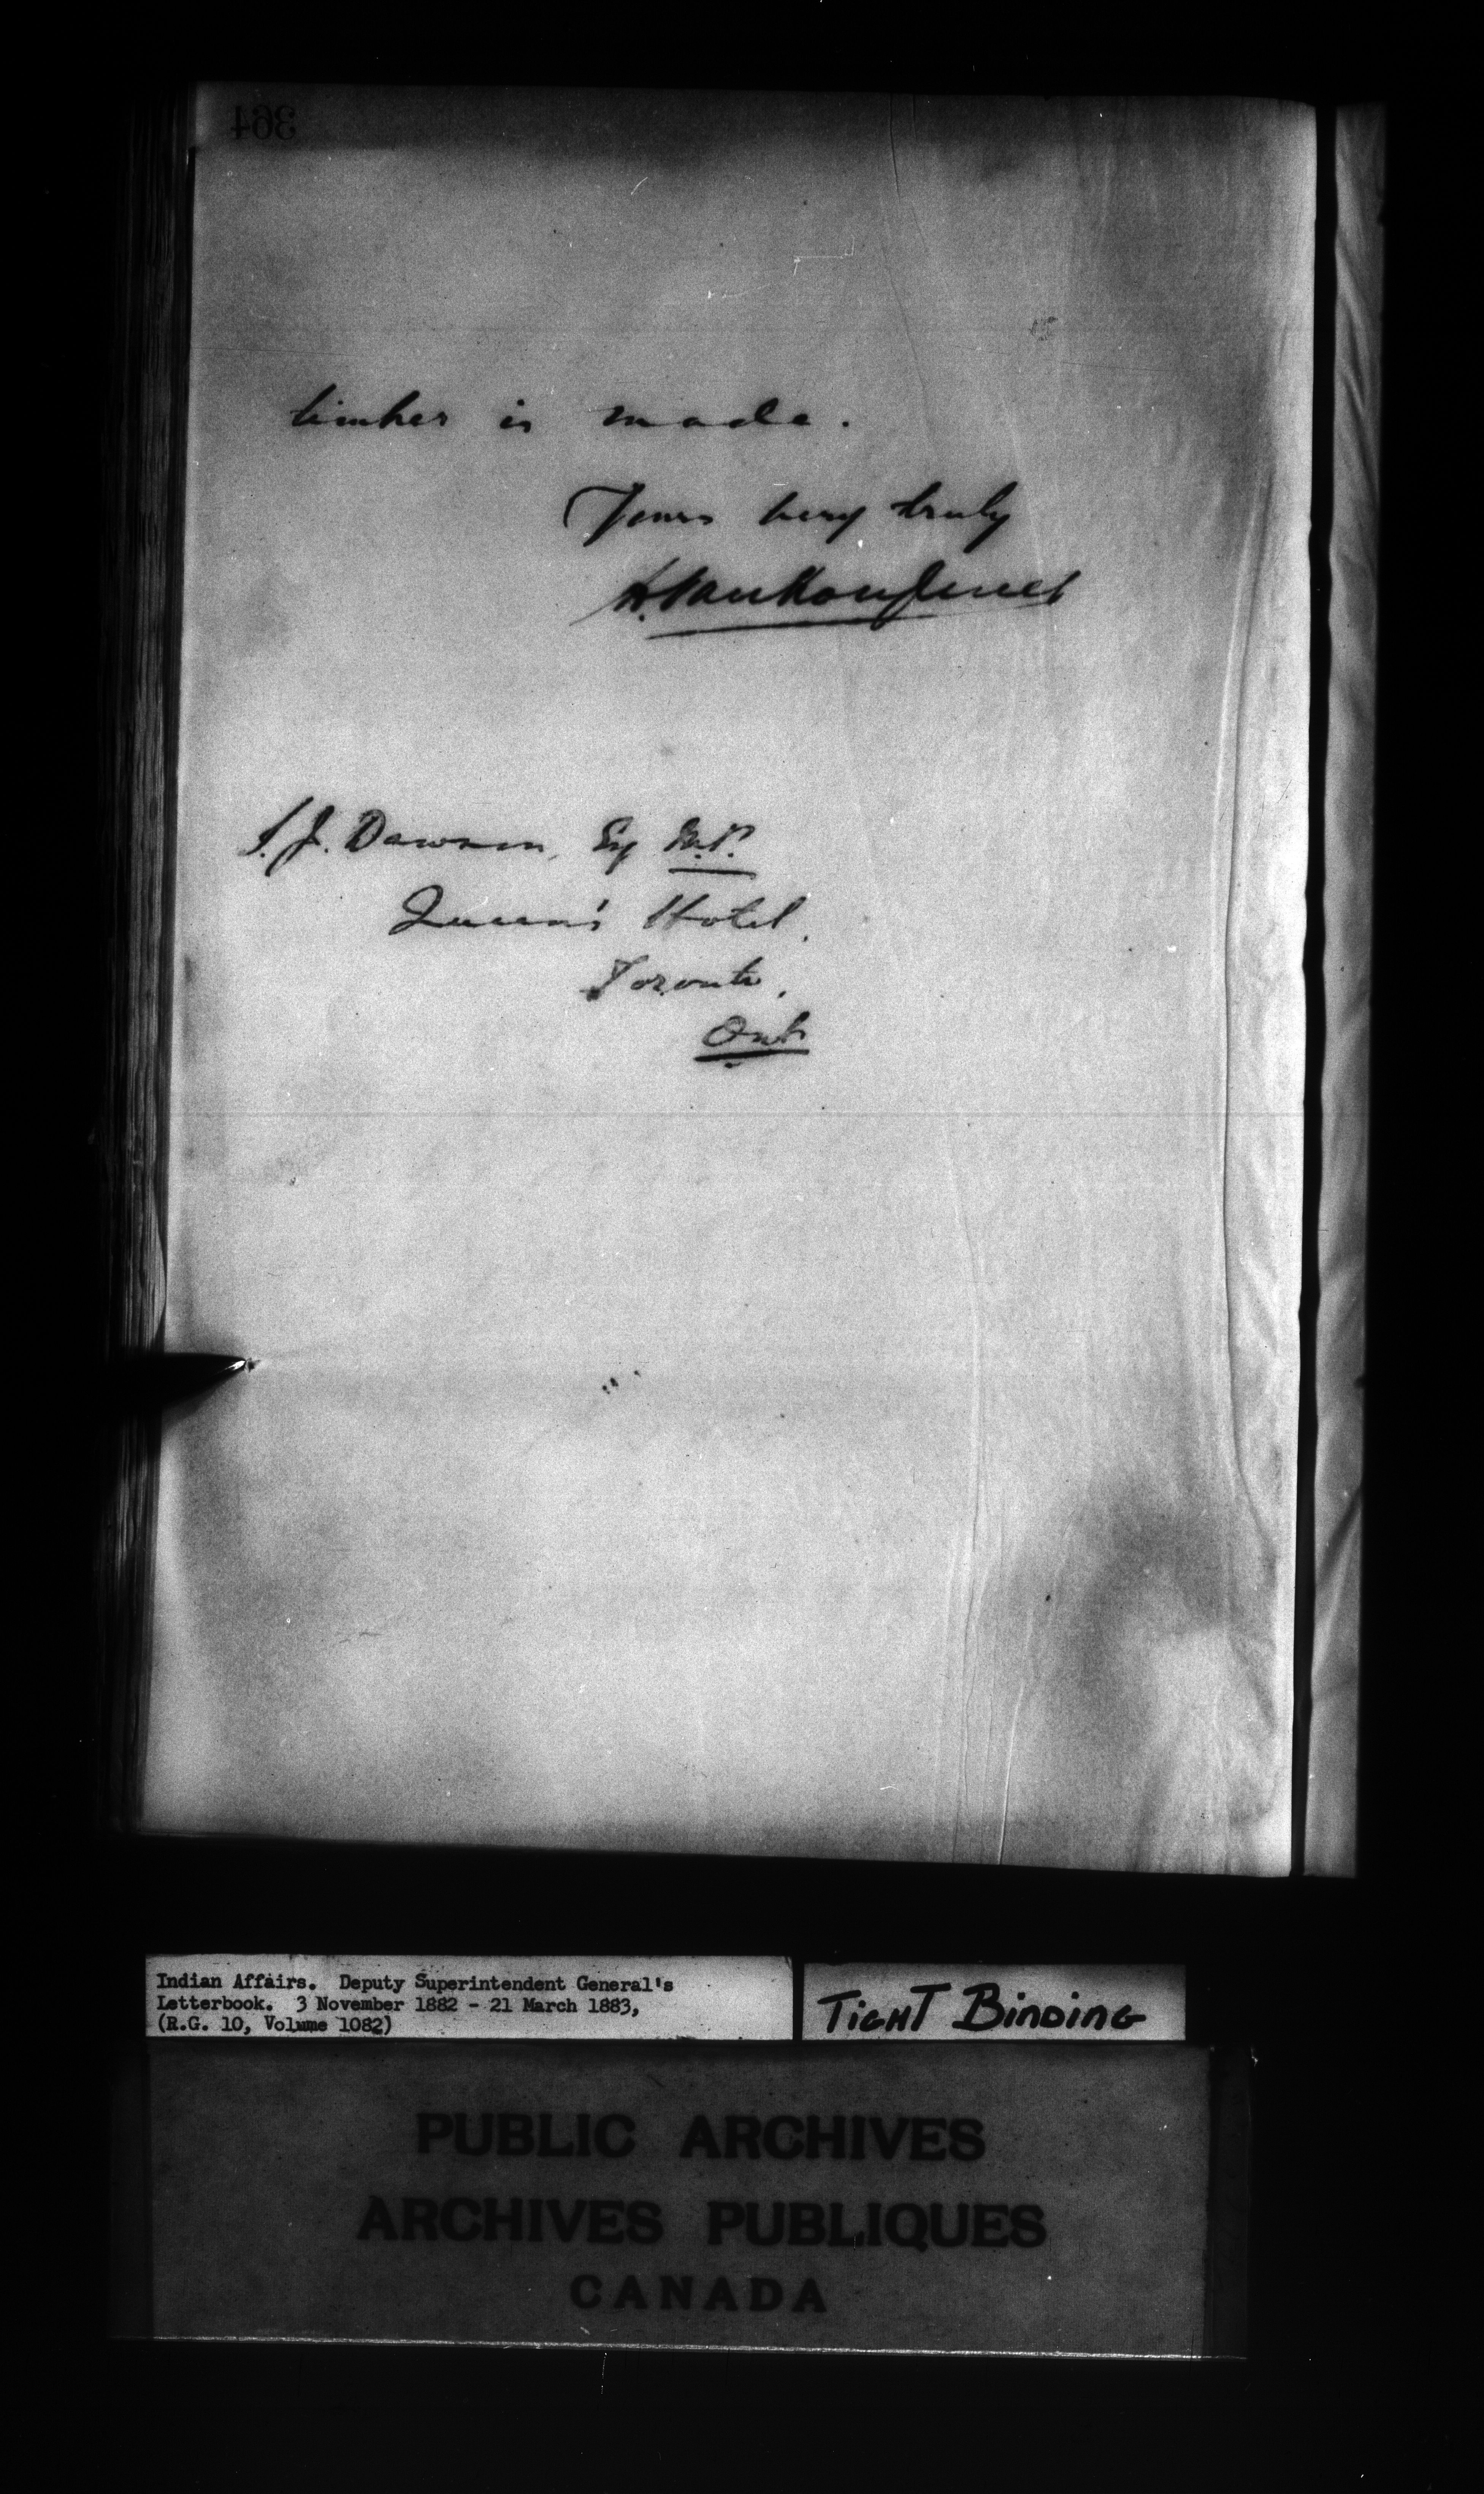 364
timber is made.
Yours very truly
L. Vankoughnet
S. J. Dawson, Esq M.P.
Queen's Hotel.
Toronto.
Ont
Indian Affairs. Deputy Superintendent General's
Letterbook. 3 November 1882 - 21 March 1883,
(R.G. 10, Volume 1082)
TIGHT BINDING
PUBLIC ARCHIVES
ARCHIVES PUBLIQUES
CANADA